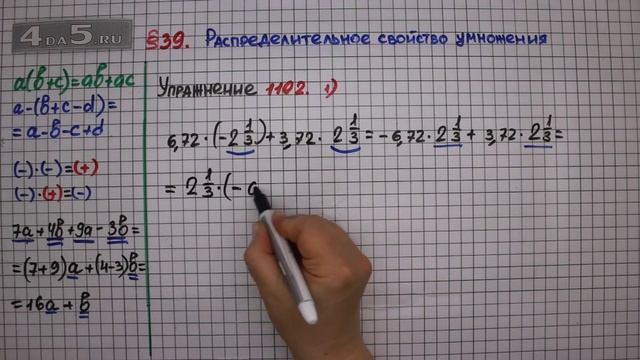 4DA5.RU
§39. Распределительное свойство умножения
a(b+c)=ab+ac
a-(b+c-d)=
=a-b-c+d
(-)·(-)=(+)
(-)·(+)=(-)
7a+4b+9a-3b=
=(7+9)a+(4-3)b=
=16a+b
Упражнение 1102. 1)
6,72·(-2 1/3)+3,72·2 1/3=-6,72·2 1/3+3,72·2 1/3=
=2 1/3·(-